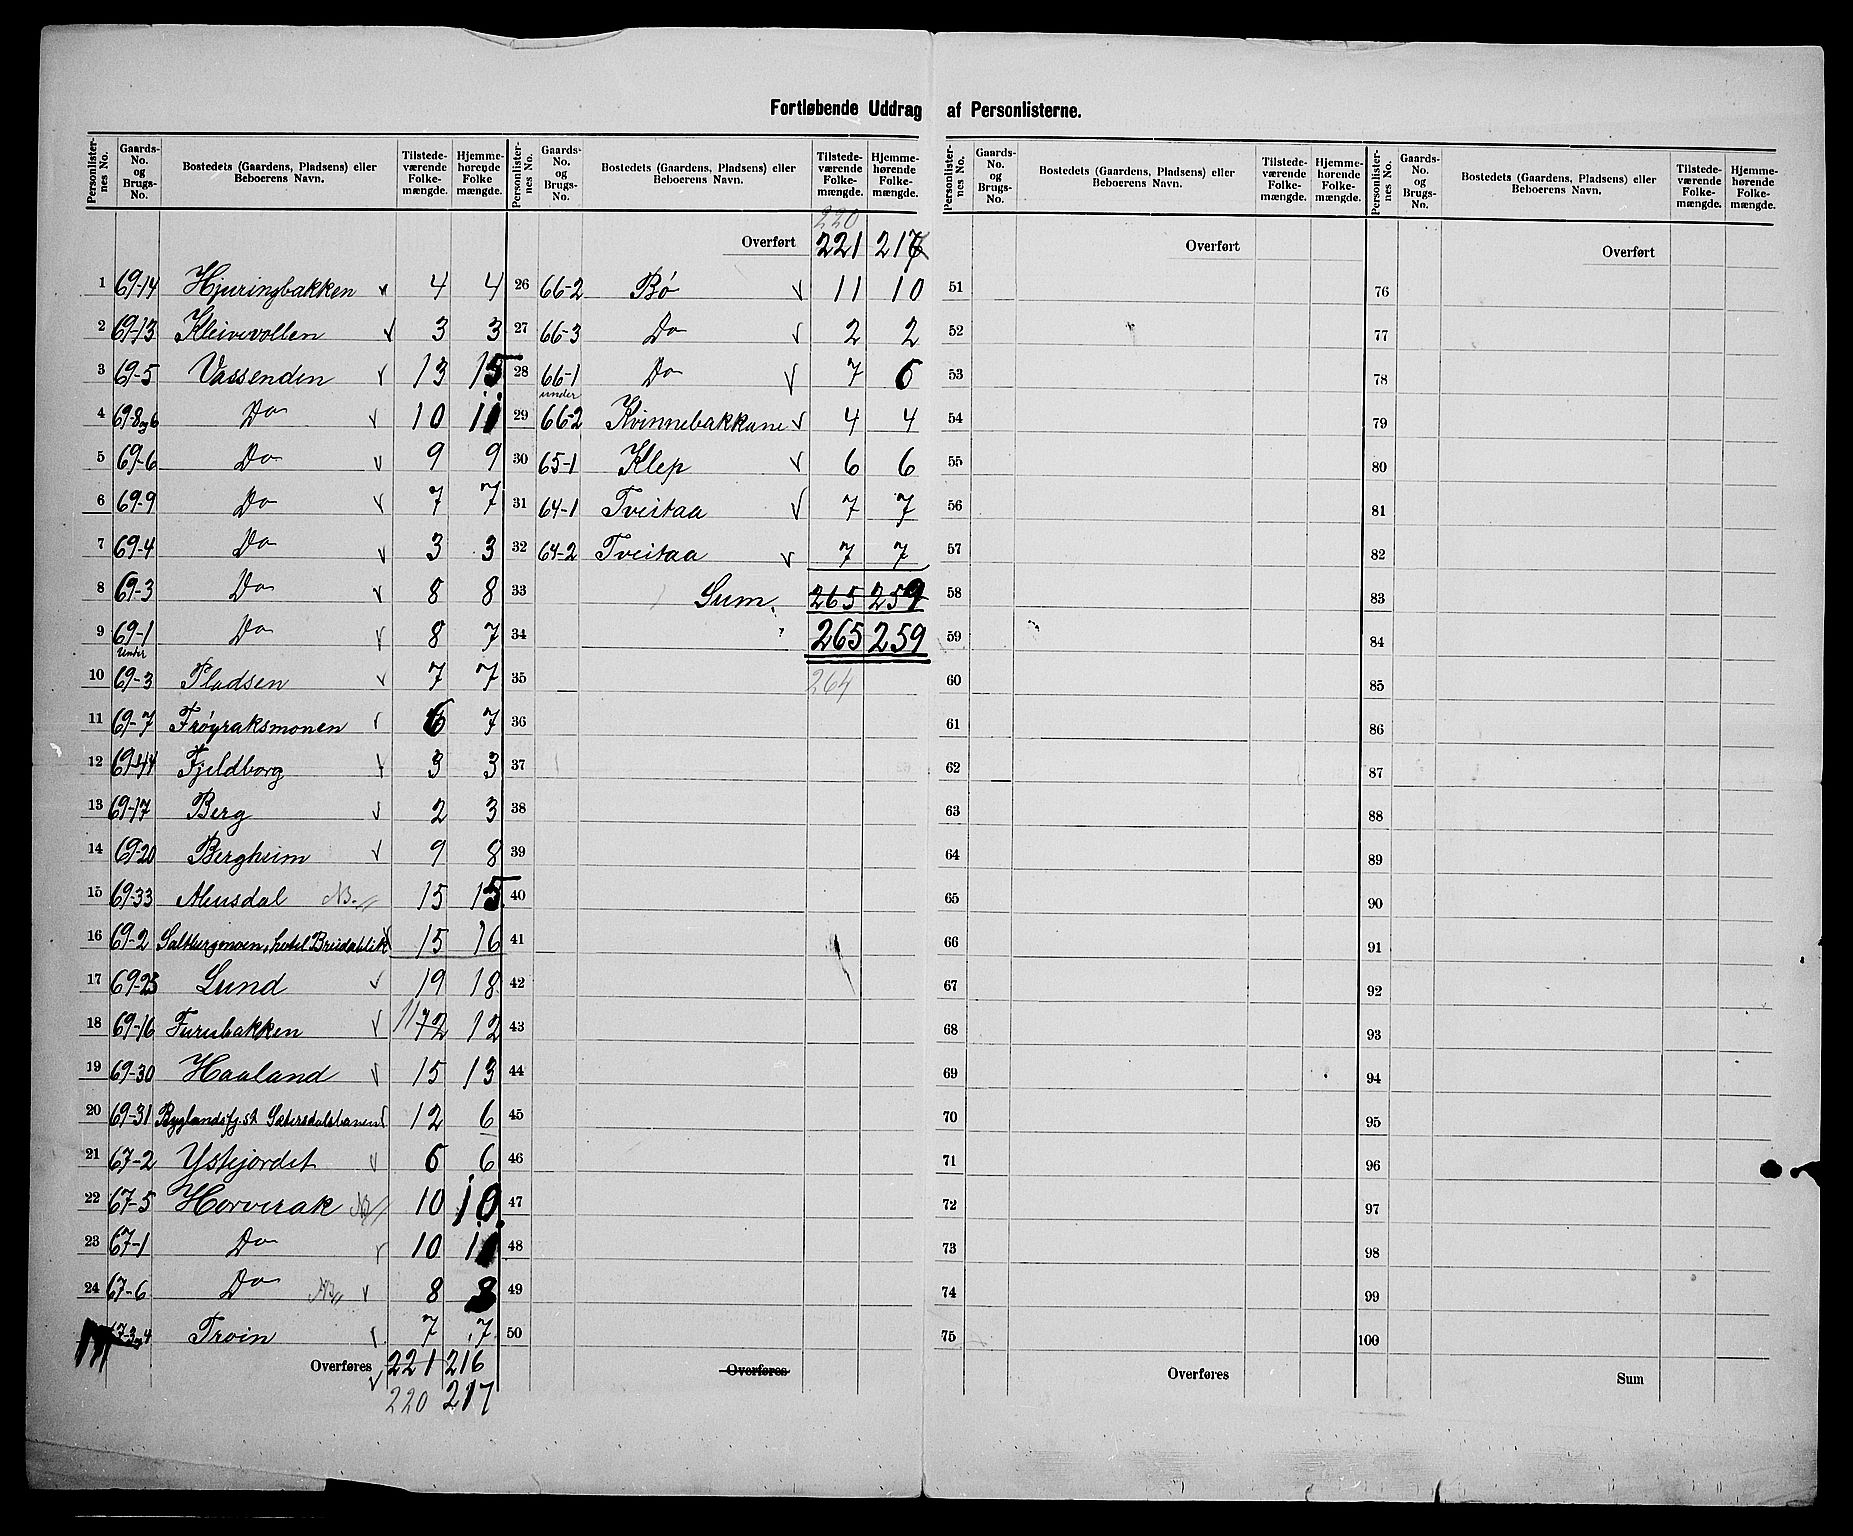 Fortløbende Uddrag af Personlisterne.
Personlister-nes No. | Gaards-No. og Brugs-No. | Bostedets (Gaardens, Pladsens) eller Beboerens Navn. | Tilstede-værende Folke-mængde. | Hjemme-hørende Folke mængde.
1 69-14 Hjuringbakken v 4 4
2 69-13 Kleivevollen v 3 3
3 69-5 Vassenden v 13 15
4 69-8 og 6 Do v 10 11
5 69-6 Do v 9 9
6 69-9 Do v 7 7
7 69-4 Do v 3 3
8 69-3 Do v 8 8
9 69-1 Do v 8 7
under
10 69-3 Pladsen v 7 7
11 69-7 Frøyraksmonen v 6 7
12 69-44 Fjeldborg v 3 3
13 69-17 Berg v 2 3
14 69-20 Bergheim v 9 8
15 69-33 Neusdal NB 15 15
16 69-2 hotel Breidablik v 15 16
17 69-23 Lund v 19 18
18 69-16 Furubakken v 11 12 12
19 69-30 Haaland v 15 13
20 69-31 Byglandsfj. st Sætersdalsbanen 12 6
21 67-2 Ystejordet v 6 6
22 67-5 Horverak NB 10 10
23 67-1 Do v 10 11
24 67-6 Do NB v 8 8
67-3 og 4 Troin v 7 7
Overføres 221 216
v 220 217
Personlister-nes No. | Gaards-No. og Brugs-No. | Bostedets (Gaardens, Pladsens) eller Beboerens Navn. | Tilstede-værende Folke-mængde. | Hjemme-hørende Folke-mængde.
220
Overført 221 217
26 66-2 Bø v 11 10
27 66-3 Do v 2 2
28 66-1 Do v 7 6
under
29 66-2 Kvinnebakkane v 4 4
30 65-1 Klep v 6 6
31 64-1 Tveitaa v 7 7
32 64-2 Tveitaa v 7 7
33 Sum. 265 259
34 265 259
35 264
36
37
38
39
40
41
42
43
44
45
46
47
48
49
50
Overføres
Personlister-nes No. | Gaards-No. og Brugs-No. | Bostedets (Gaardens, Pladsens) eller Beboerens Navn. | Tilstede-værende Folke-mængde. | Hjemme-hørende Folke-mængde.
Overført
51
52
53
54
55
56
57
58
59
60
61
62
63
64
65
66
67
68
69
70
71
72
73
74
75
Overføres
Personlister-nes No. | Gaards-No. og Brugs-No. | Bostedets (Gaardens, Pladsens) eller Beboerens Navn. | Tilstede-værende Folke-mængde. | Hjemme-hørende Folke-mængde.
Overført
76
77
78
79
80
81
82
83
84
85
86
87
88
89
90
91
92
93
94
95
96
97
98
99
100
Sum